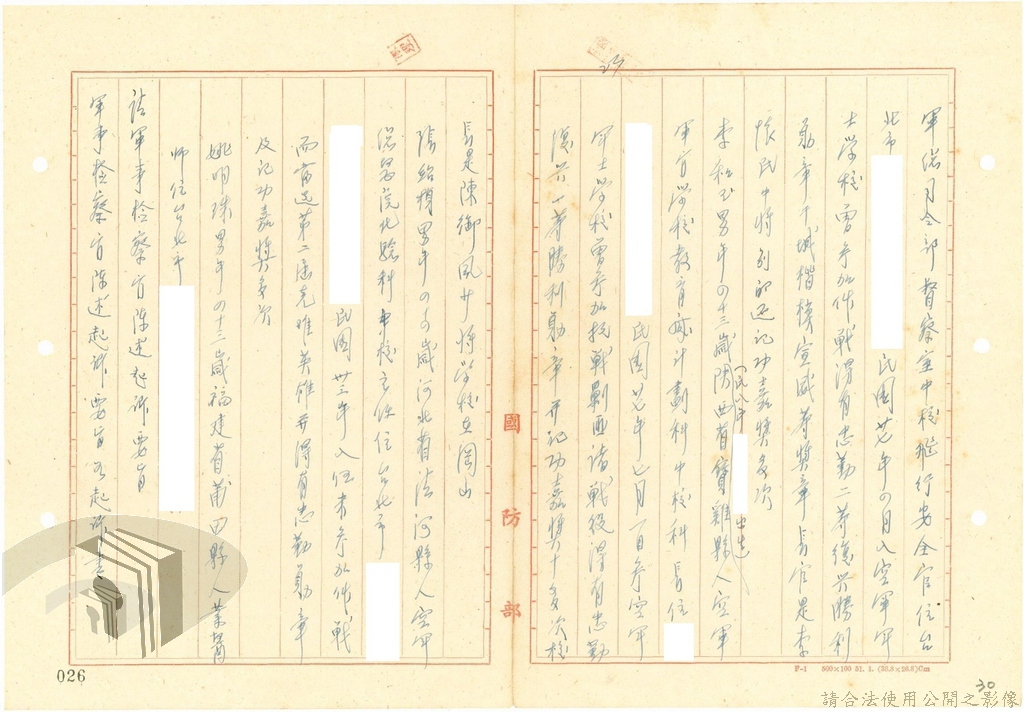 軍保司令部督察室中校飛行安全官住台
北市 民國廿七年四月入空軍軍
士學校曾參加作戰得有忠勤二等德兴勝利
勛章干城楷模宣威等獎章長官是李
懷民中將別的還記功嘉獎多次
(民八年 出生)
李和玉男年四十三歲陝西省寶雞縣人空軍
軍官學校教育處計劃科中校科長住
民國廿七年七月一日參空軍
軍士學校曾參加抗戰剿匪諸戰役得有忠勤
德兴一等勝利勛章并記功嘉獎十多次校
國防部
長是陳御風少將學校在岡山
張紹禎男年四十四歲河北省清河縣人空軍
總醫院化驗科中校主任住台北市
民國卅三年入伍未參加作戰
而當選第二屆克難英雄并得有忠勤勛章
及記功嘉獎多次
姚明珠男年四十二歲福建省莆田縣人業醫
師住台北市
請軍事檢察官陳述起訴要旨
軍事檢察官陳述起訴要旨如起訴書
026
F-1
30
請合法使用公開之影像